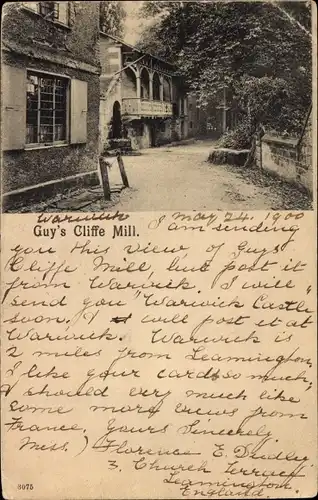 Warwick May 24. 1900
Guy's Cliffe Mill.
I am sending
you this view of Guys
Cliffe Mill, but post it
from Warwick. I will
"send you" Warwick Castle
soon. I will post it at
Warwick. Warwick is
2 miles from Leamington.
I like your cards so much,
I should very much like
some more views from
France. Yours Sincerely
Miss.) Florence E. Dudley
3, Church Terrace
Leamington.
England
6075